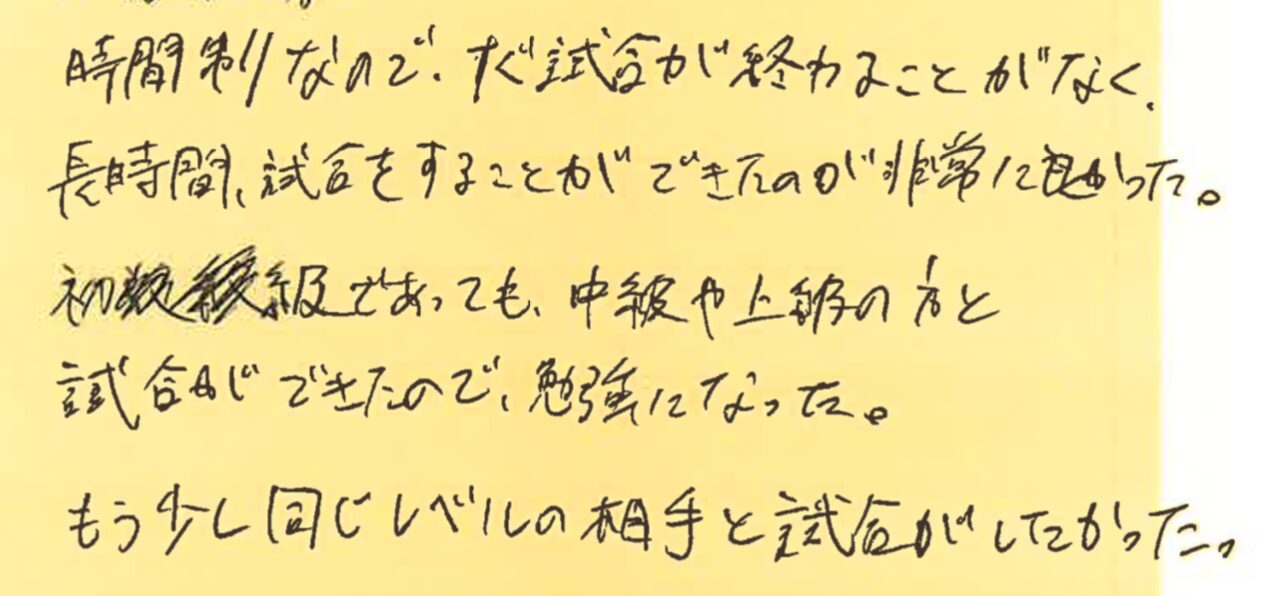 時間制なので、すぐ試合が終わることがなく、
長時間、試合をすることができたのが非常に良かった。
初級であっても、中級や上級の方と
試合ができたので、勉強になった。
もう少し同じレベルの相手と試合がしたかった。